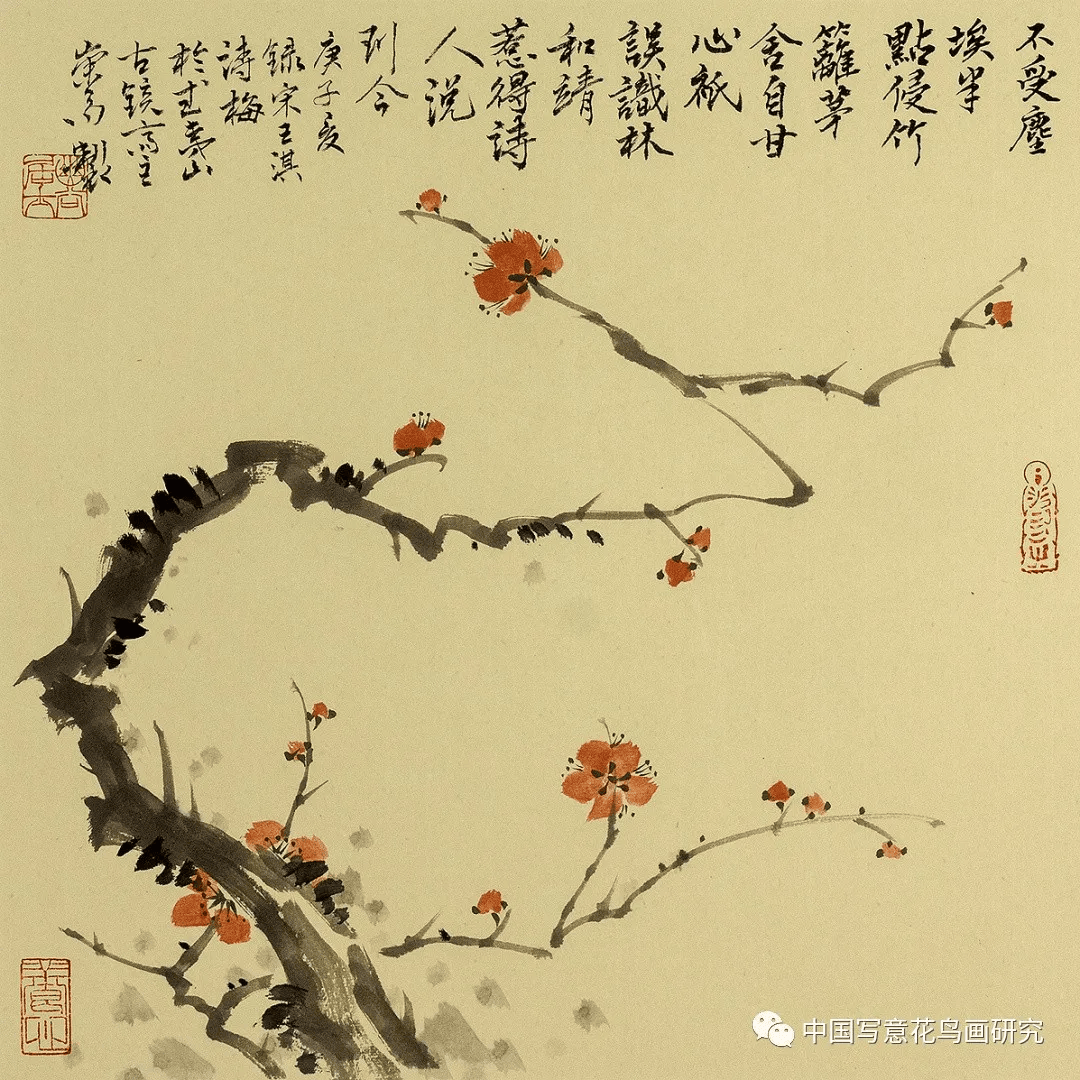 不受塵
埃半
點侵竹
籬茅
舍自甘
心祇
誤識林
和靖
惹得詩
人說
到今
庚子夏
録宋王淇
詩梅
於 山
古鏡 主
中国写意花鸟画研究